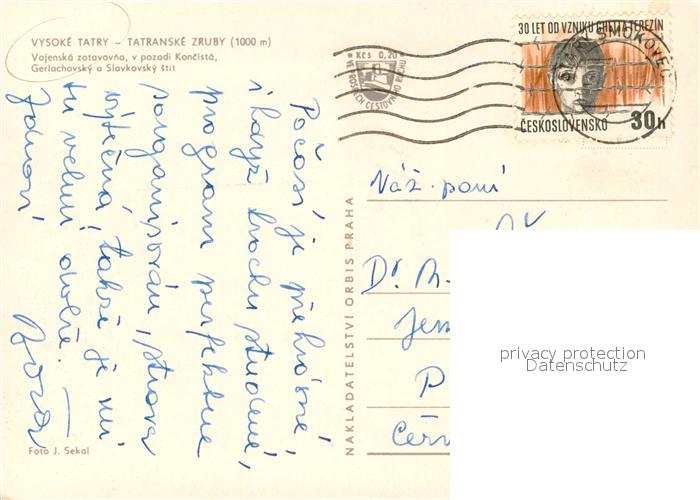 VYSOKÉ TATRY – TATRANSKÉ ZRUBY (1000 m)
Vojenská zotavovňa, v pozadí Končistá,
Gerlachovský a Slavkovský štít
Počasí je překrásné,
i když trochu studené,
program perfektne
zorganisován, strava
výtečná, takže je mi
tu velmi dobře.
Zdraví
Foto J. Sekal
NAKLADATELSTVÍ ORBIS PRAHA
Kčs 0,20
VE PROSPĚCH CESTOVNÍHO RUCHU
30 LET OD VZNIKU GHETTA TEREZÍN
ČESKOSLOVENSKO 30h
STARÝ SMOKOVEC
Váž. paní
Dr. M.
Jem
P
Červ
privacy protection
Datenschutz